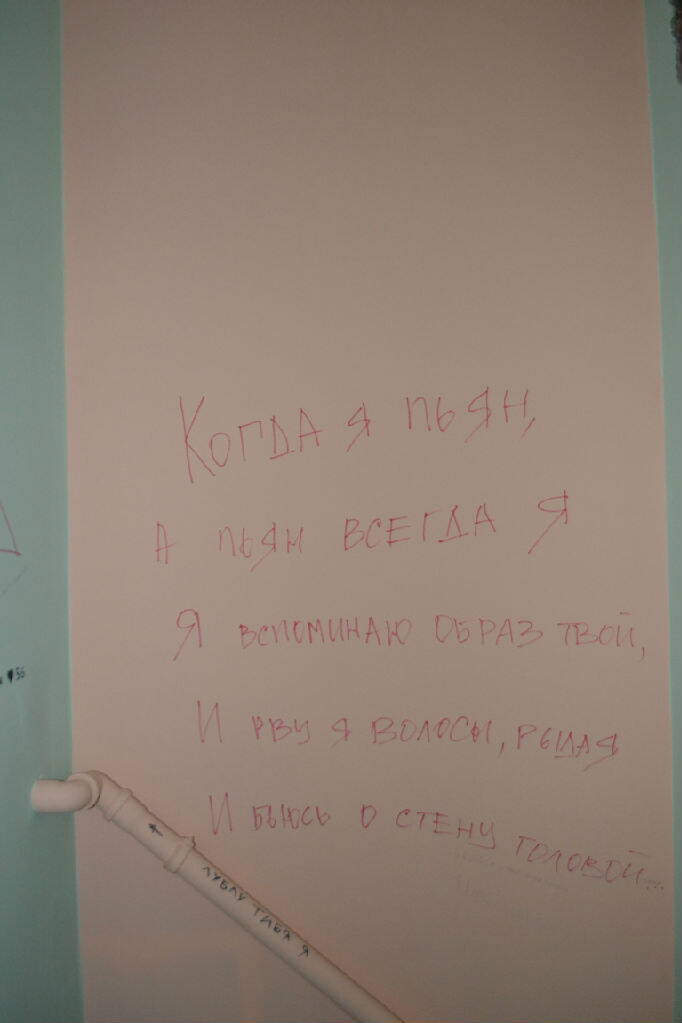 Когда я пьян,
А пьян всегда я
Я вспоминаю образ твой,
И рву я волосы, рыдая
И бьюсь о стену головой...
36
лублу тибя я